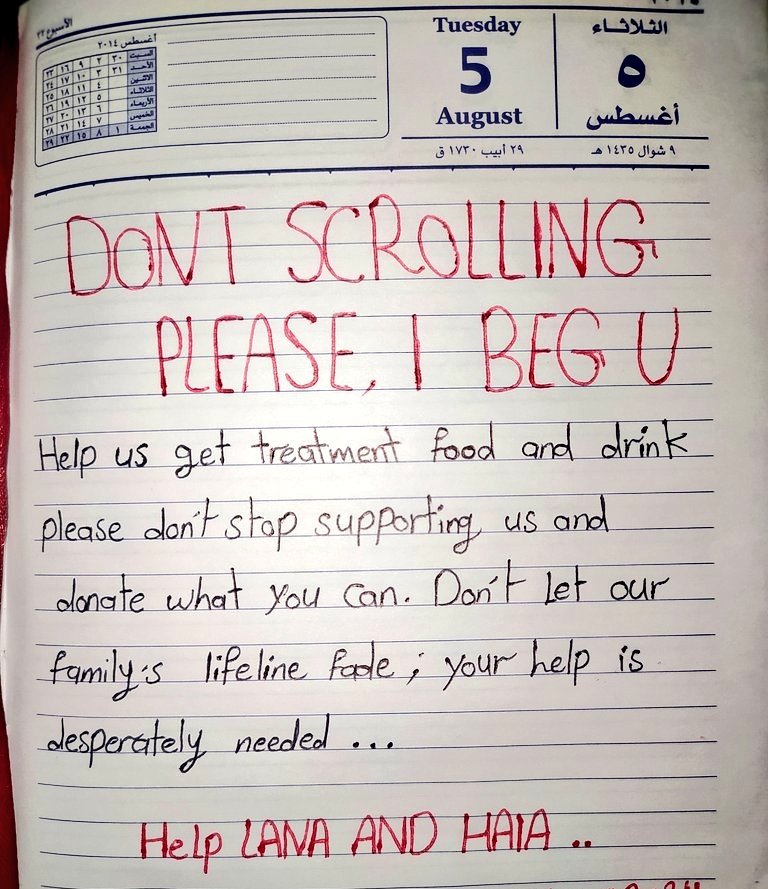 الأسبوع ٣٢
أغسطس ٢٠١٤
السبت ٣٠ ٢ ٩ ١٦ ٢٣
الأحد ٣١ ٣ ١٠ ١٧ ٢٤
الاثنين ٤ ١١ ١٨ ٢٥
الثلاثاء ٥ ١٢ ١٩ ٢٦
الأربعاء ٦ ١٣ ٢٠ ٢٧
الخميس ٧ ١٤ ٢١ ٢٨
الجمعة ١ ٨ ١٥ ٢٢ ٢٩
Tuesday الثلاثاء
5 ٥
August أغسطس
٢٩ أبيب ١٧٣٠ ق ٩ شوال ١٤٣٥ هـ
DONT SCROLLING
PLEASE, I BEG U
Help us get treatment food and drink
please don't stop supporting us and
donate what you can. Don't let our
family's lifeline fade ; your help is
desperately needed ...
Help LANA AND HAIA ..